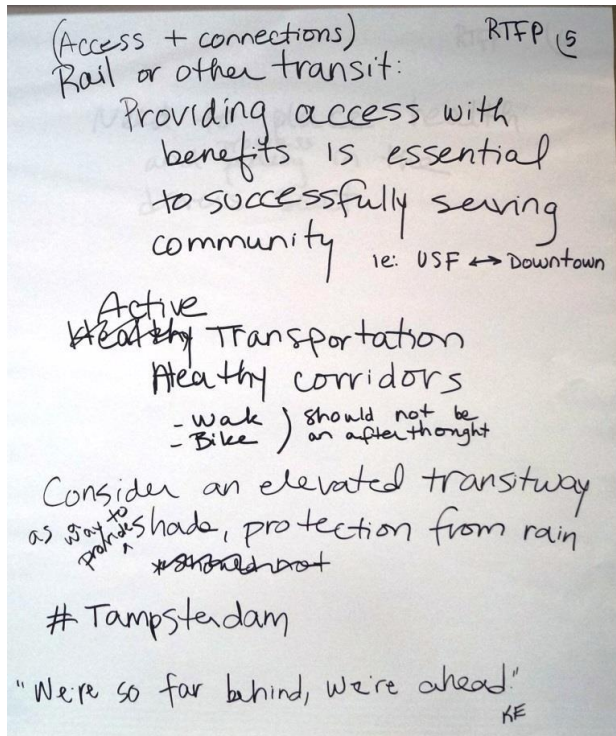 (Access + connections) RTFP 5
Rail or other transit:
Providing access with
benefits is essential
to successfully serving
community ie: USF ↔ Downtown
Active
Healthy Transportation
Heathy corridors
- Wak ) should not be
- Bike ) an afterthought
Consider an elevated transitway
as way to provide shade, protection from rain
*should not
# Tampsterdam
"We're so far behind, we're ahead."
KE